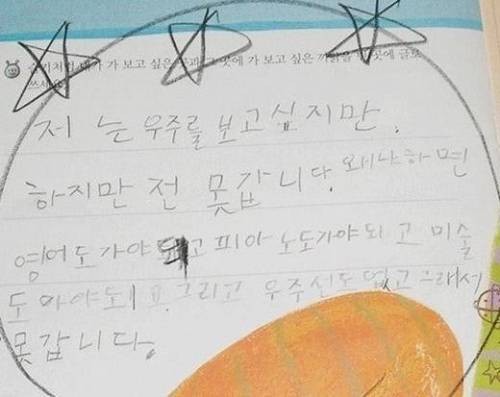 가 보고 싶은 곳에 가 보고 싶은 까닭을 곳에
저 는 우주를 보고십지만.
하지만 전 못갑니다. 왜냐하면
영어도가야 되고 피아노도가야되 고 미술
도 가야되요. 그리고 우주선도 업고 그래서
못갑니다.